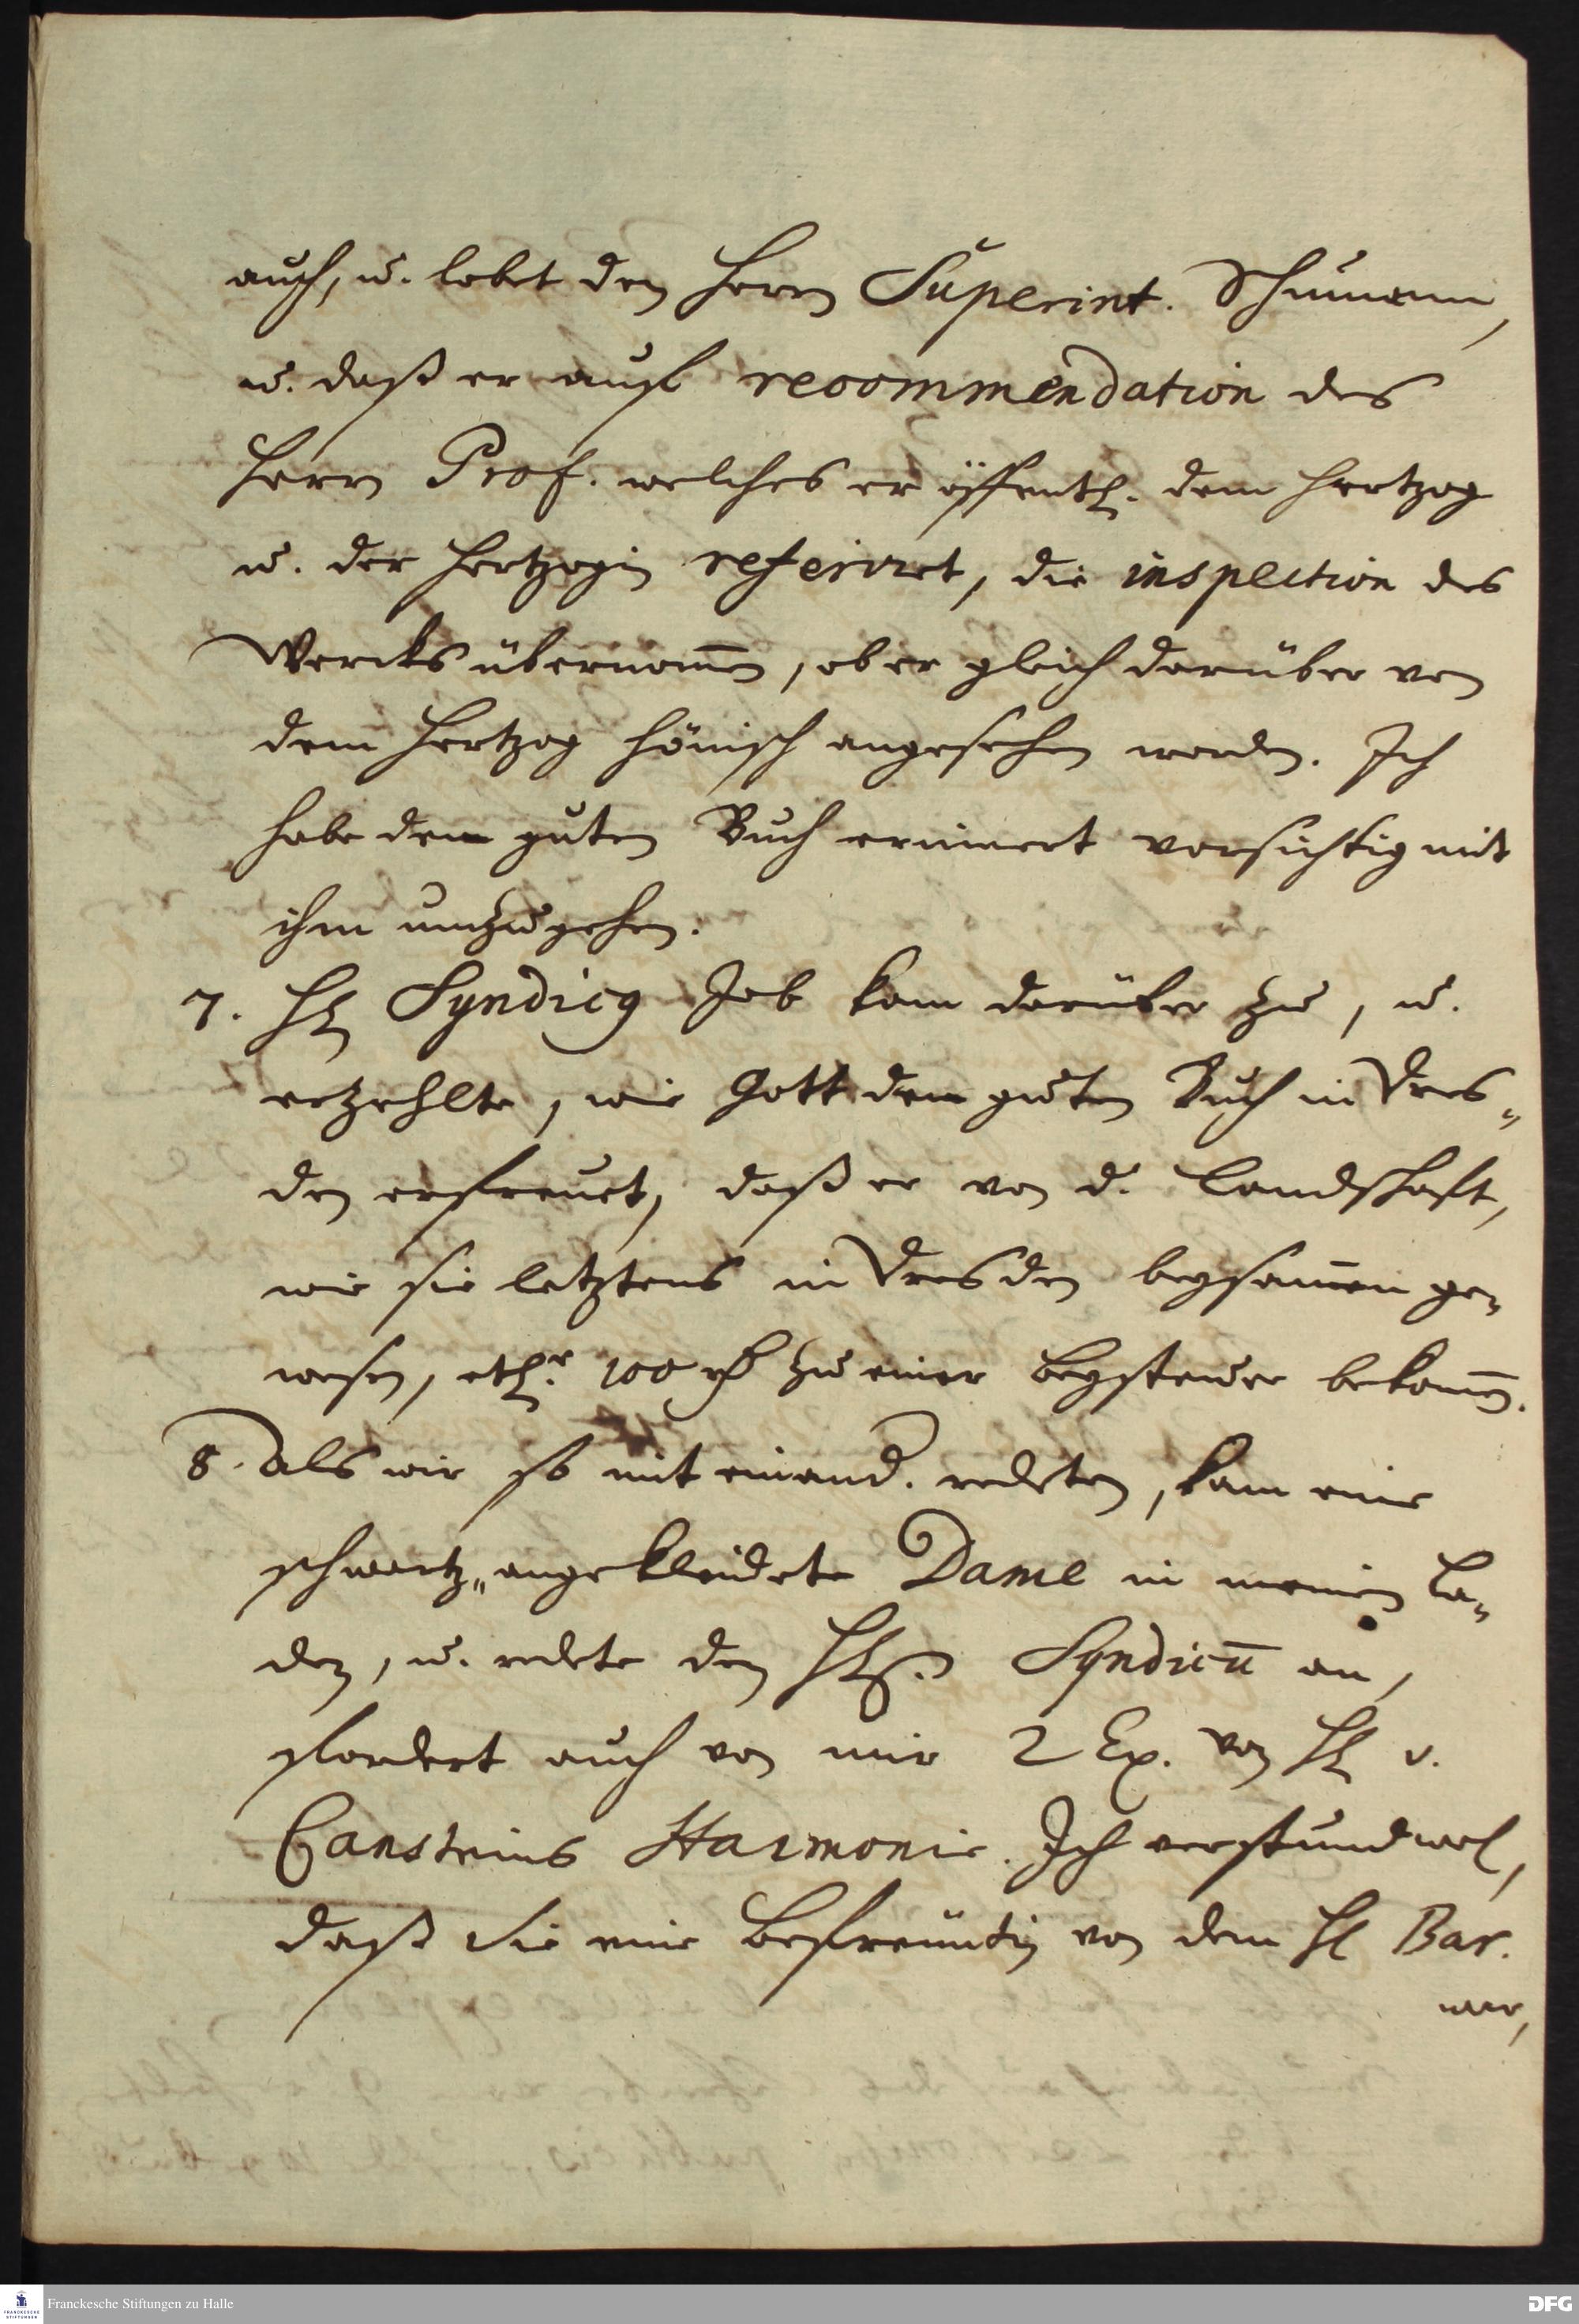 auch, u. lobet den Herrn Superint. Schumann,
u. daß er auf recommendation des
Herrn Prof. welches er öffentl. dem Hertzog
u. der Hertzogin referiret, die inspection des
Wercks übernom̄en, ob er gleich darüber von
dem Hertzog hönisch angesehen worden. Ich
habe dem guten Buch erinnert vorsichtig mit
ihm umzugehen.
7. H. Syndicus Job kam darüber zu, u.
erzehlte, wie Gott dem guten Buch in Dres„
den erfreuet, daß er von d. Landschafft,
wie sie letztens in Dresden beysammen ge„
wesen, etl. 100 rh zu einer Beysteuer bekom̄en.
8. Als wir so mit einand. redeten, kam eine
schwartz„angekleidete Dame in meinen La„
den, u. redete den H. Syndicū an,
fordert auch von mir 2 Ex. von H. v.
Cansteins Harmonie. Ich verstund wol,
daß Sie eine Befreundin von dem H. Bar.
war,
Franckesche Stiftungen zu Halle
DFG